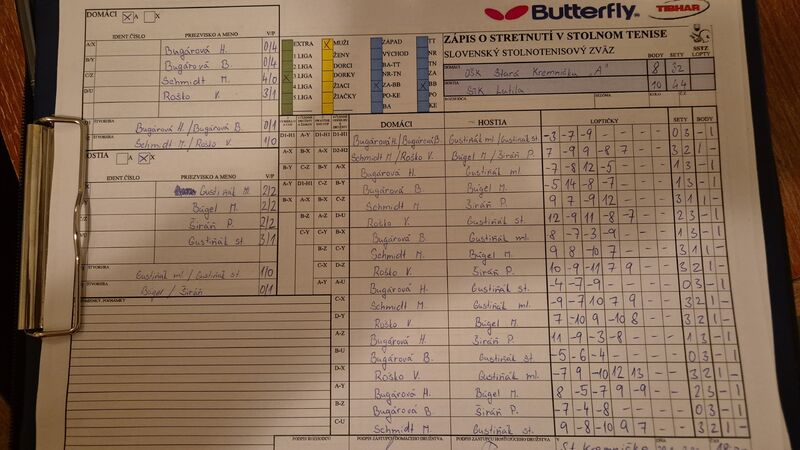 DOMÁCI A X
Butterfly TIBHAR
IDENT ČÍSLO PRIEZVISKO A MENO V/P
ZÁPIS O STRETNUTÍ V STOLNOM TENISE
SLOVENSKÝ STOLNOTENISOVÝ ZVÄZ
BODY SETY LOPTY
A/X Bugárová H. 0/4
B/Y Bugárová B. 0/4
C/Z Schmidt M. 4/0
D/U Roško V. 3/1
EXTRA MUŽI ZÁPAD TT
1 LIGA ŽENY VÝCHOD BB
2 LIGA DORCI BA-TT NR
3 LIGA DORKY NR-TN ZA
4 LIGA ŽIACI ZA-BB BB
5 LIGA ŽIAČKY PO-KE PO
BA KE
DOMÁCI OŠK Stará Kremnička "A" 8 32
HOSTIA STK Lutila 10 44
Bugárová H. / Bugárová B. 0/1
Schmidt M. / Roško V. 1/0
HOSTIA A X
IDENT ČÍSLO PRIEZVISKO A MENO V/P
Gustiňák M. 2/2
Búgel M. 2/2
Širáň P. 2/2
Gustiňák st. 3/1
Gustiňák ml / Gustiňák st. 1/0
Búgel / Širáň 0/1
DOMÁCI HOSTIA LOPTIČKY SETY BODY
Bugárová H/Bugárová B. Gustiňák ml/Gustiňák st. -3 -7 -9 - - 0 3 - 1
Schmidt M/Roško V. Búgel M/Širáň P. 7 -9 9 -8 7 3 2 1 -
Bugárová H. Gustiňák ml. -7 -8 12 -5 - 1 3 - 1
Bugárová B. Búgel M. -5 14 -8 -7 - 1 3 - 1
Schmidt M. Širáň P. 9 7 -9 12 - 3 1 1 -
Roško V. Gustiňák st. 12 -9 11 -8 -7 2 3 - 1
Bugárová B. Gustiňák ml. 8 -7 -3 -9 - 1 3 - 1
Schmidt M. Búgel M. 9 8 -10 7 - 3 1 1 -
Roško V. Širáň P. 10 -9 -11 7 9 3 2 1 -
Bugárová H. Gustiňák st. -4 -7 -9 - - 0 3 - 1
Schmidt M. Gustiňák ml. -9 -7 10 7 9 3 2 1 -
Roško V. Búgel M. 7 -10 9 -10 8 3 2 1 -
Bugárová H. Širáň P. 11 -9 -3 -8 - 1 3 - 1
Bugárová B. Gustiňák st. -5 -6 -4 - - 0 3 - 1
Roško V. Gustiňák ml. -7 9 -10 12 13 3 2 1 -
Bugárová H. Búgel M. 8 -5 -7 9 -9 2 3 - 1
Bugárová B. Širáň P. -7 -4 -8 - - 0 3 - 1
Schmidt M. Gustiňák st. 9 -8 -10 9 7 3 2 1 -
PODPIS ROZHODCU PODPIS ZÁSTUPCU DOMÁCEHO DRUŽSTVA PODPIS ZÁSTUPCU HOSŤUJÚCEHO DRUŽSTVA